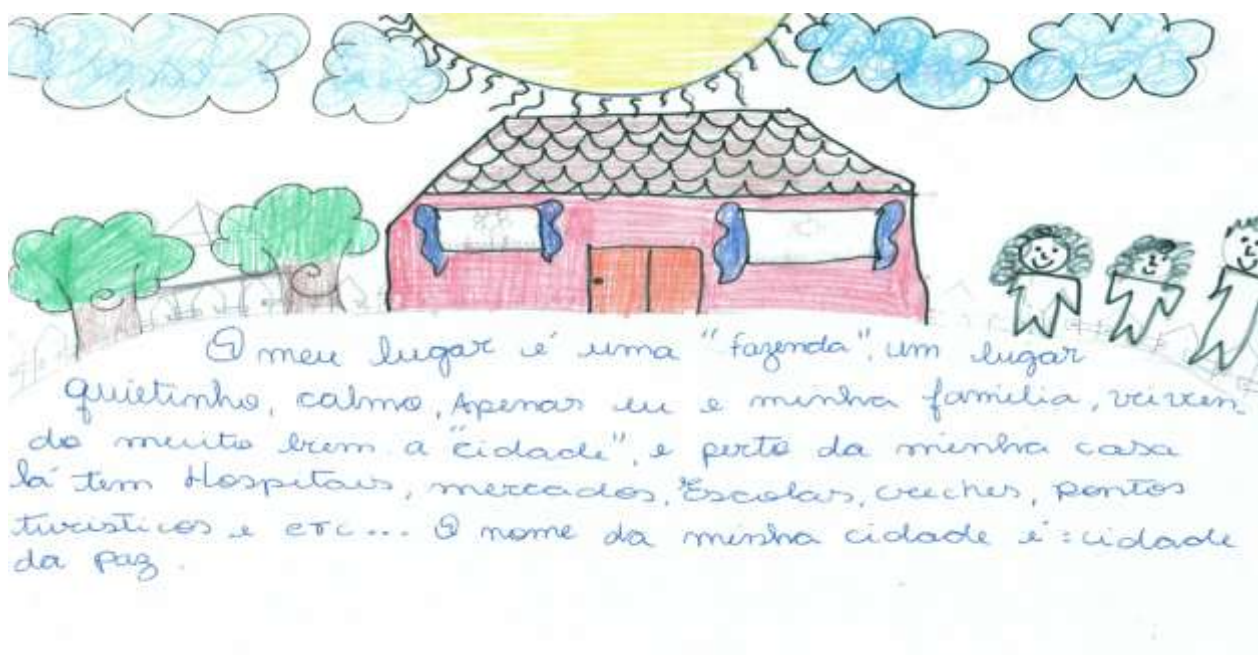 O meu lugar é uma "fazenda", um lugar
quietinho, calmo, Apenas eu e minha familia, viven
do muito bem a "cidade", e perto da minha casa
lá tem Hospitais, mercados, Escolas, creches, pontos
turisticos e etc... O nome da minha cidade é: cidade
da paz.